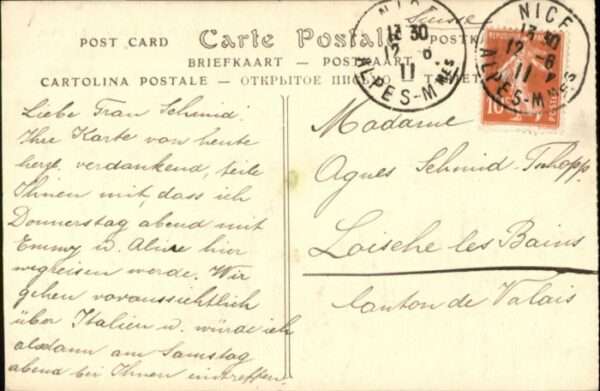 Suisse
POST CARD
Carte Postale
BRIEFKAART — POSTKAART
CARTOLINA POSTALE — ОТКРЫТОЕ
NICE
13 30
12 - 6
11
ALPES-Mmes
NICE
13 30
12 - 6
11
ALPES-M
10
POSTES
Liebe Frau Schmid!
Ihre Karte von heute
herzl. verdankend, teile
Ihnen mit, dass ich
Donnerstag abend mit
Emmy u. Aline hier
wegreisen werde. Wir
gehen voraussichtlich
über Italien u. würde ich
alsdann am Samstag
abend bei Ihnen eintreffen.
Madame
Agnes Schmid-
Loische les Bains
Canton de Valais